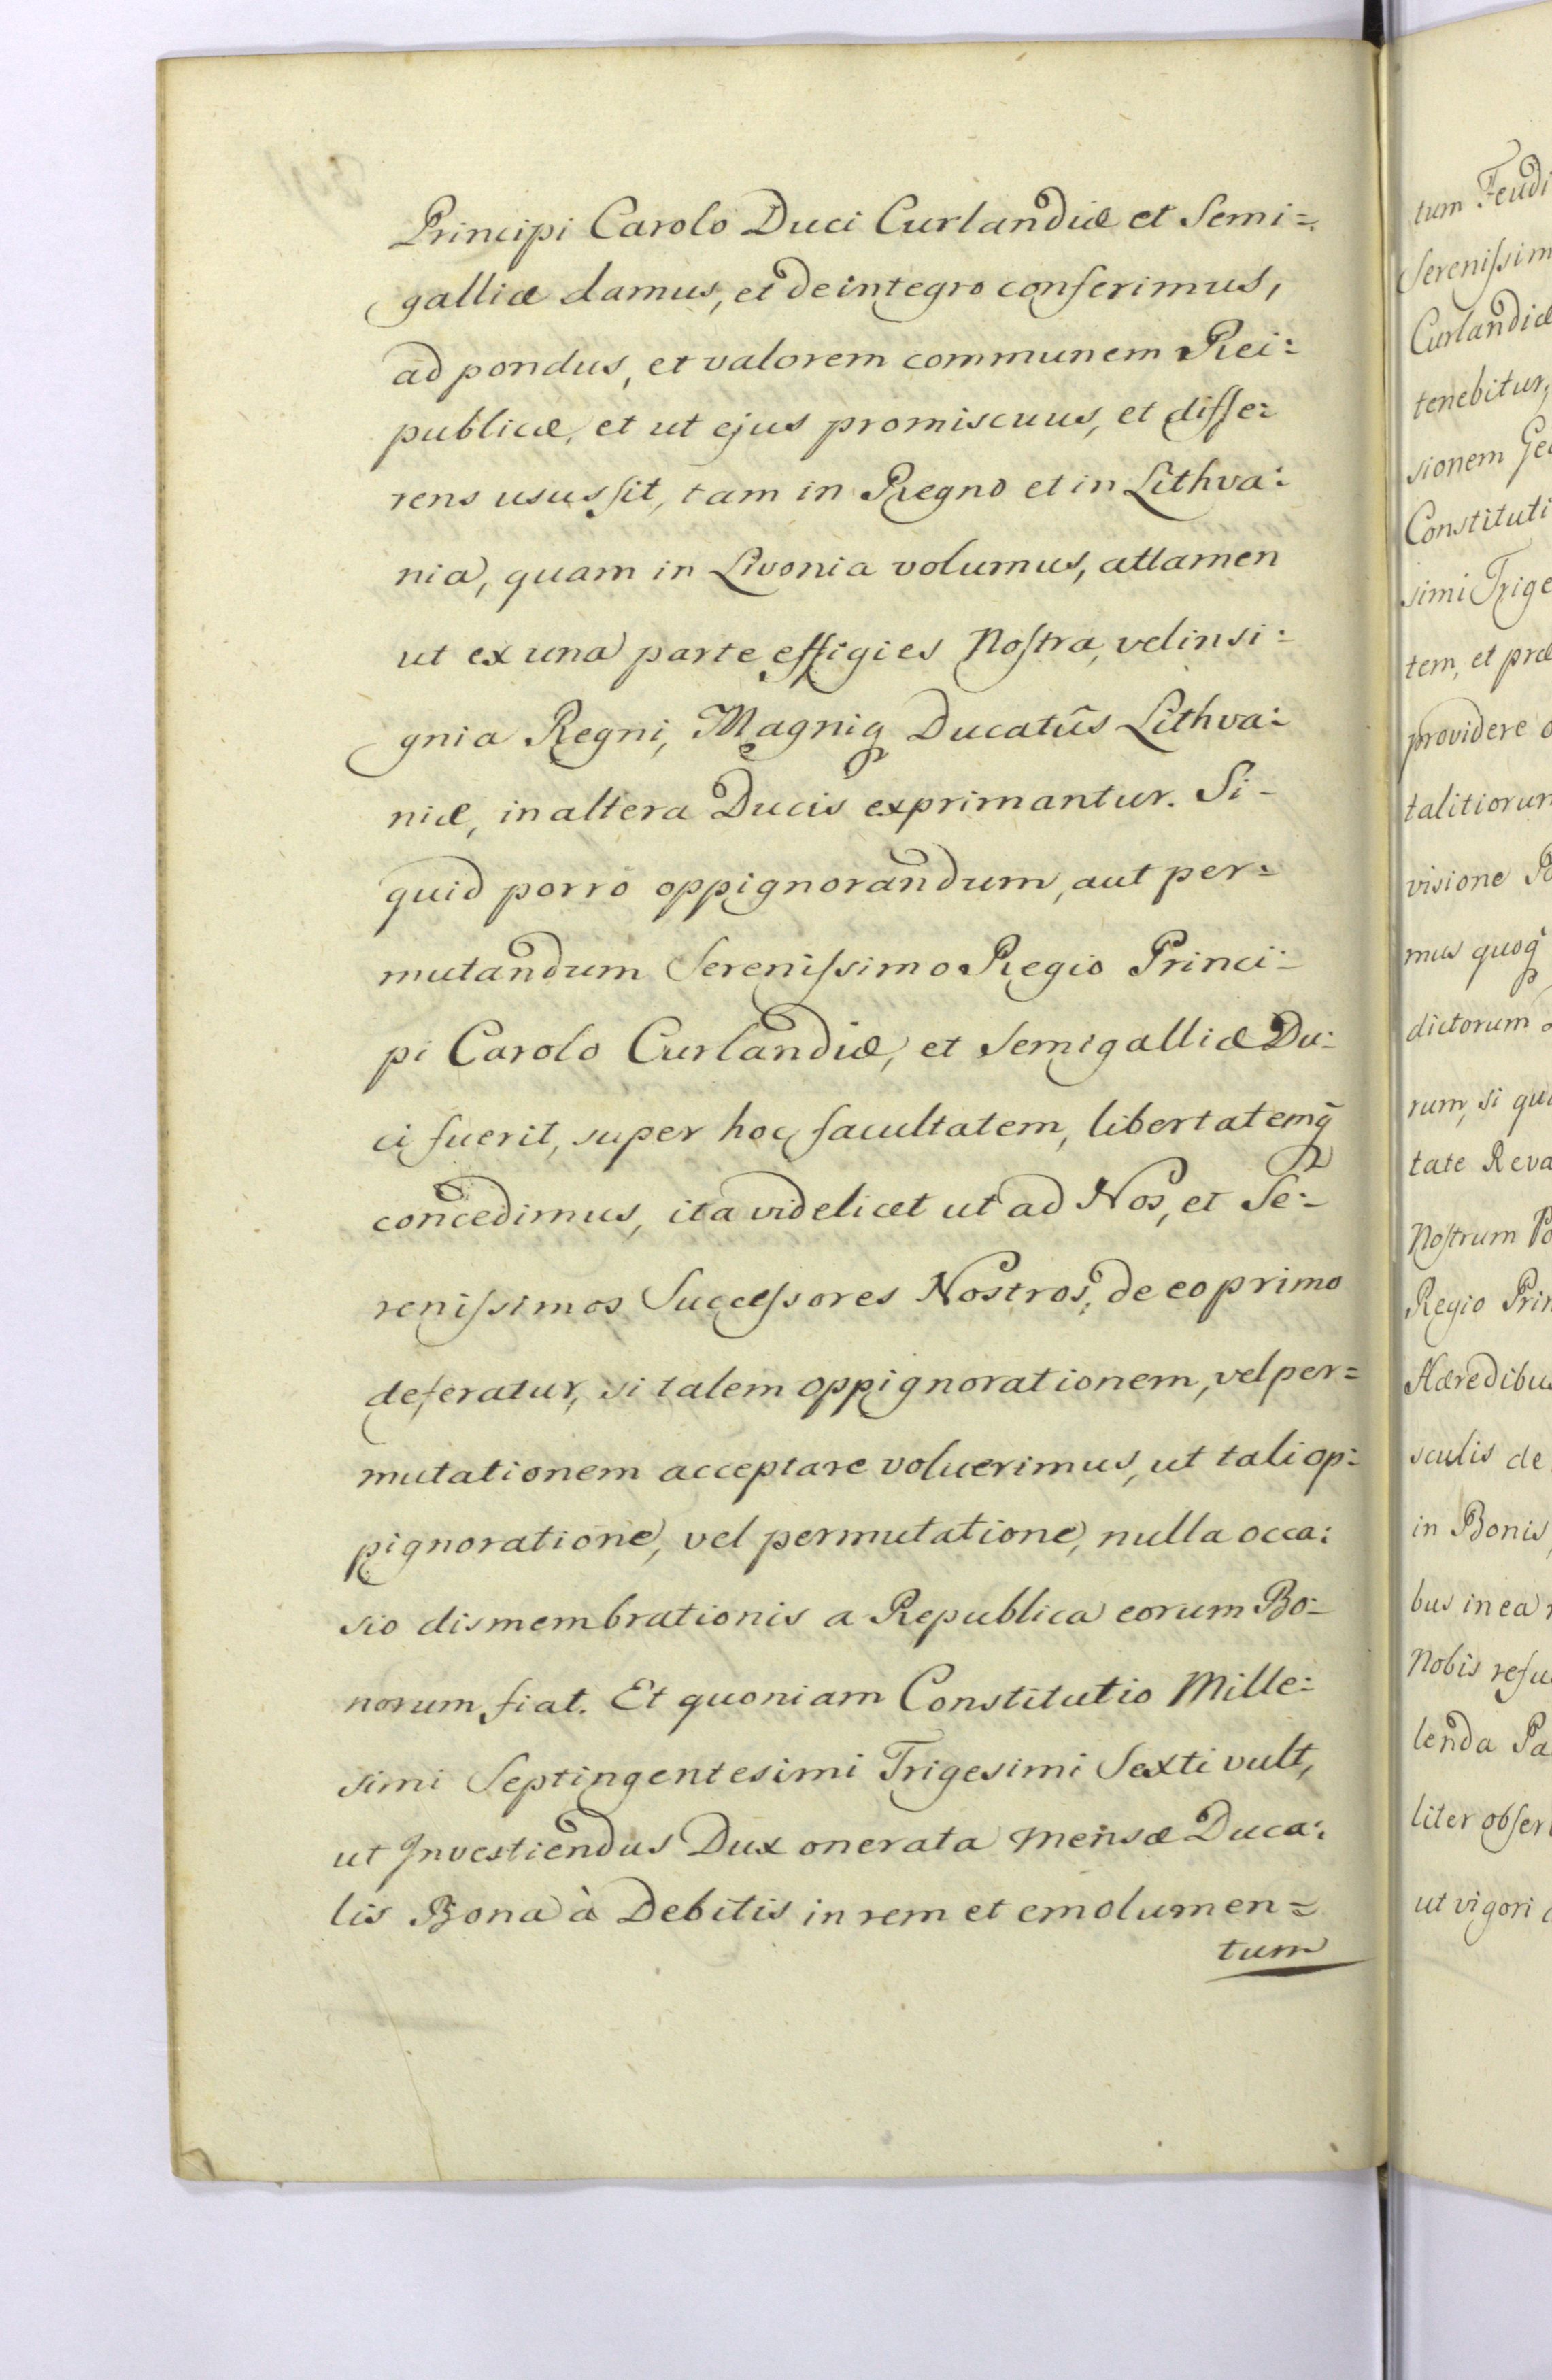 Principi Carolo Duci Curlandiæ et Semi=
galliæ damus, et de integro conferimus,
ad pondus, et valorem communem Rei=
publicæ, et ut ejus promiscuus, et diffe=
rens usus sit, tam in Regno et in Lithva=
nia, quam in Livonia volumus, attamen
ut ex una parte effigies Nostra, vel insi=
gnia Regni, Magniq Ducatûs Lithva=
niæ, in altera Ducis exprimantur. Si-
quid porro oppignorandum, aut per=
mutandum Serenissimo Regio Princi=
pi Carolo Curlandiæ, et Semigalliæ Du=
ci fuerit, super hoc facultatem, libertatemq̃
concedimus, ita videlicet ut ad Nos, et Se=
renissimos Successores Nostros, de eo primo
deferatur, si talem oppignorationem, vel per=
mutationem acceptare voluerimus, ut tali op=
pignoratione, vel permutatione, nulla occa=
sio dismembrationis a Republica eorum Bo=
norum fiat. Et quoniam Constitutio Mille=
simi Septingentesimi Trigesimi Sexti vult,
ut Investiendus Dux onerata mensæ Duca=
lis Bona à Debitis in rem et emolumen=
tum
tum Feudi
Serenissim
Curlandiæ
tenebitur,
sionem
Constituti
simi Trige
tem, et præ
providere
talitiorum
visione
mus quoq
dictorum
rum, si qu
tate Reva
Nostrum
Regio Prin
Hæredibus
sculis de
in Bonis,
bus in ea
Nobis refu
lenda Pa
liter obser
ut vigori